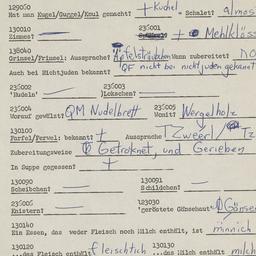 129080 + Kuchel
Hat man Kugel/Guggel/Keul gemacht? = Schalet? Almos
130010 236001
Zimmes? + Mehlklöss
138040
Grimsel/Primsel: Aussprache? Apfelstrudel Wann zubereitet? NO
Auch bei Nichtjuden bekannt? QF nicht bei nichtjuden gekannt
236002 236003
'Nudeln' )Lokschen?
236004 236005
Worauf gewällst? QM Nudelbrett Womit? Wergelholz
130100
Farfel/Fervel: bekannt? + Aussprache Zweerl/ Tz
Zubereitungsweise Getroknet, und Gerieben
In Suppe gegessen? +
130090 130091
Scheibchen? Schildchen?
236006 123030
Knistern? 'geröstete Gänsehaut'
130140
Ein Essen, das weder Fleisch noch Milch enthält, ist minnich
130120 130130
...das Fleisch enthält fleischtich ...das Milch enthält milch